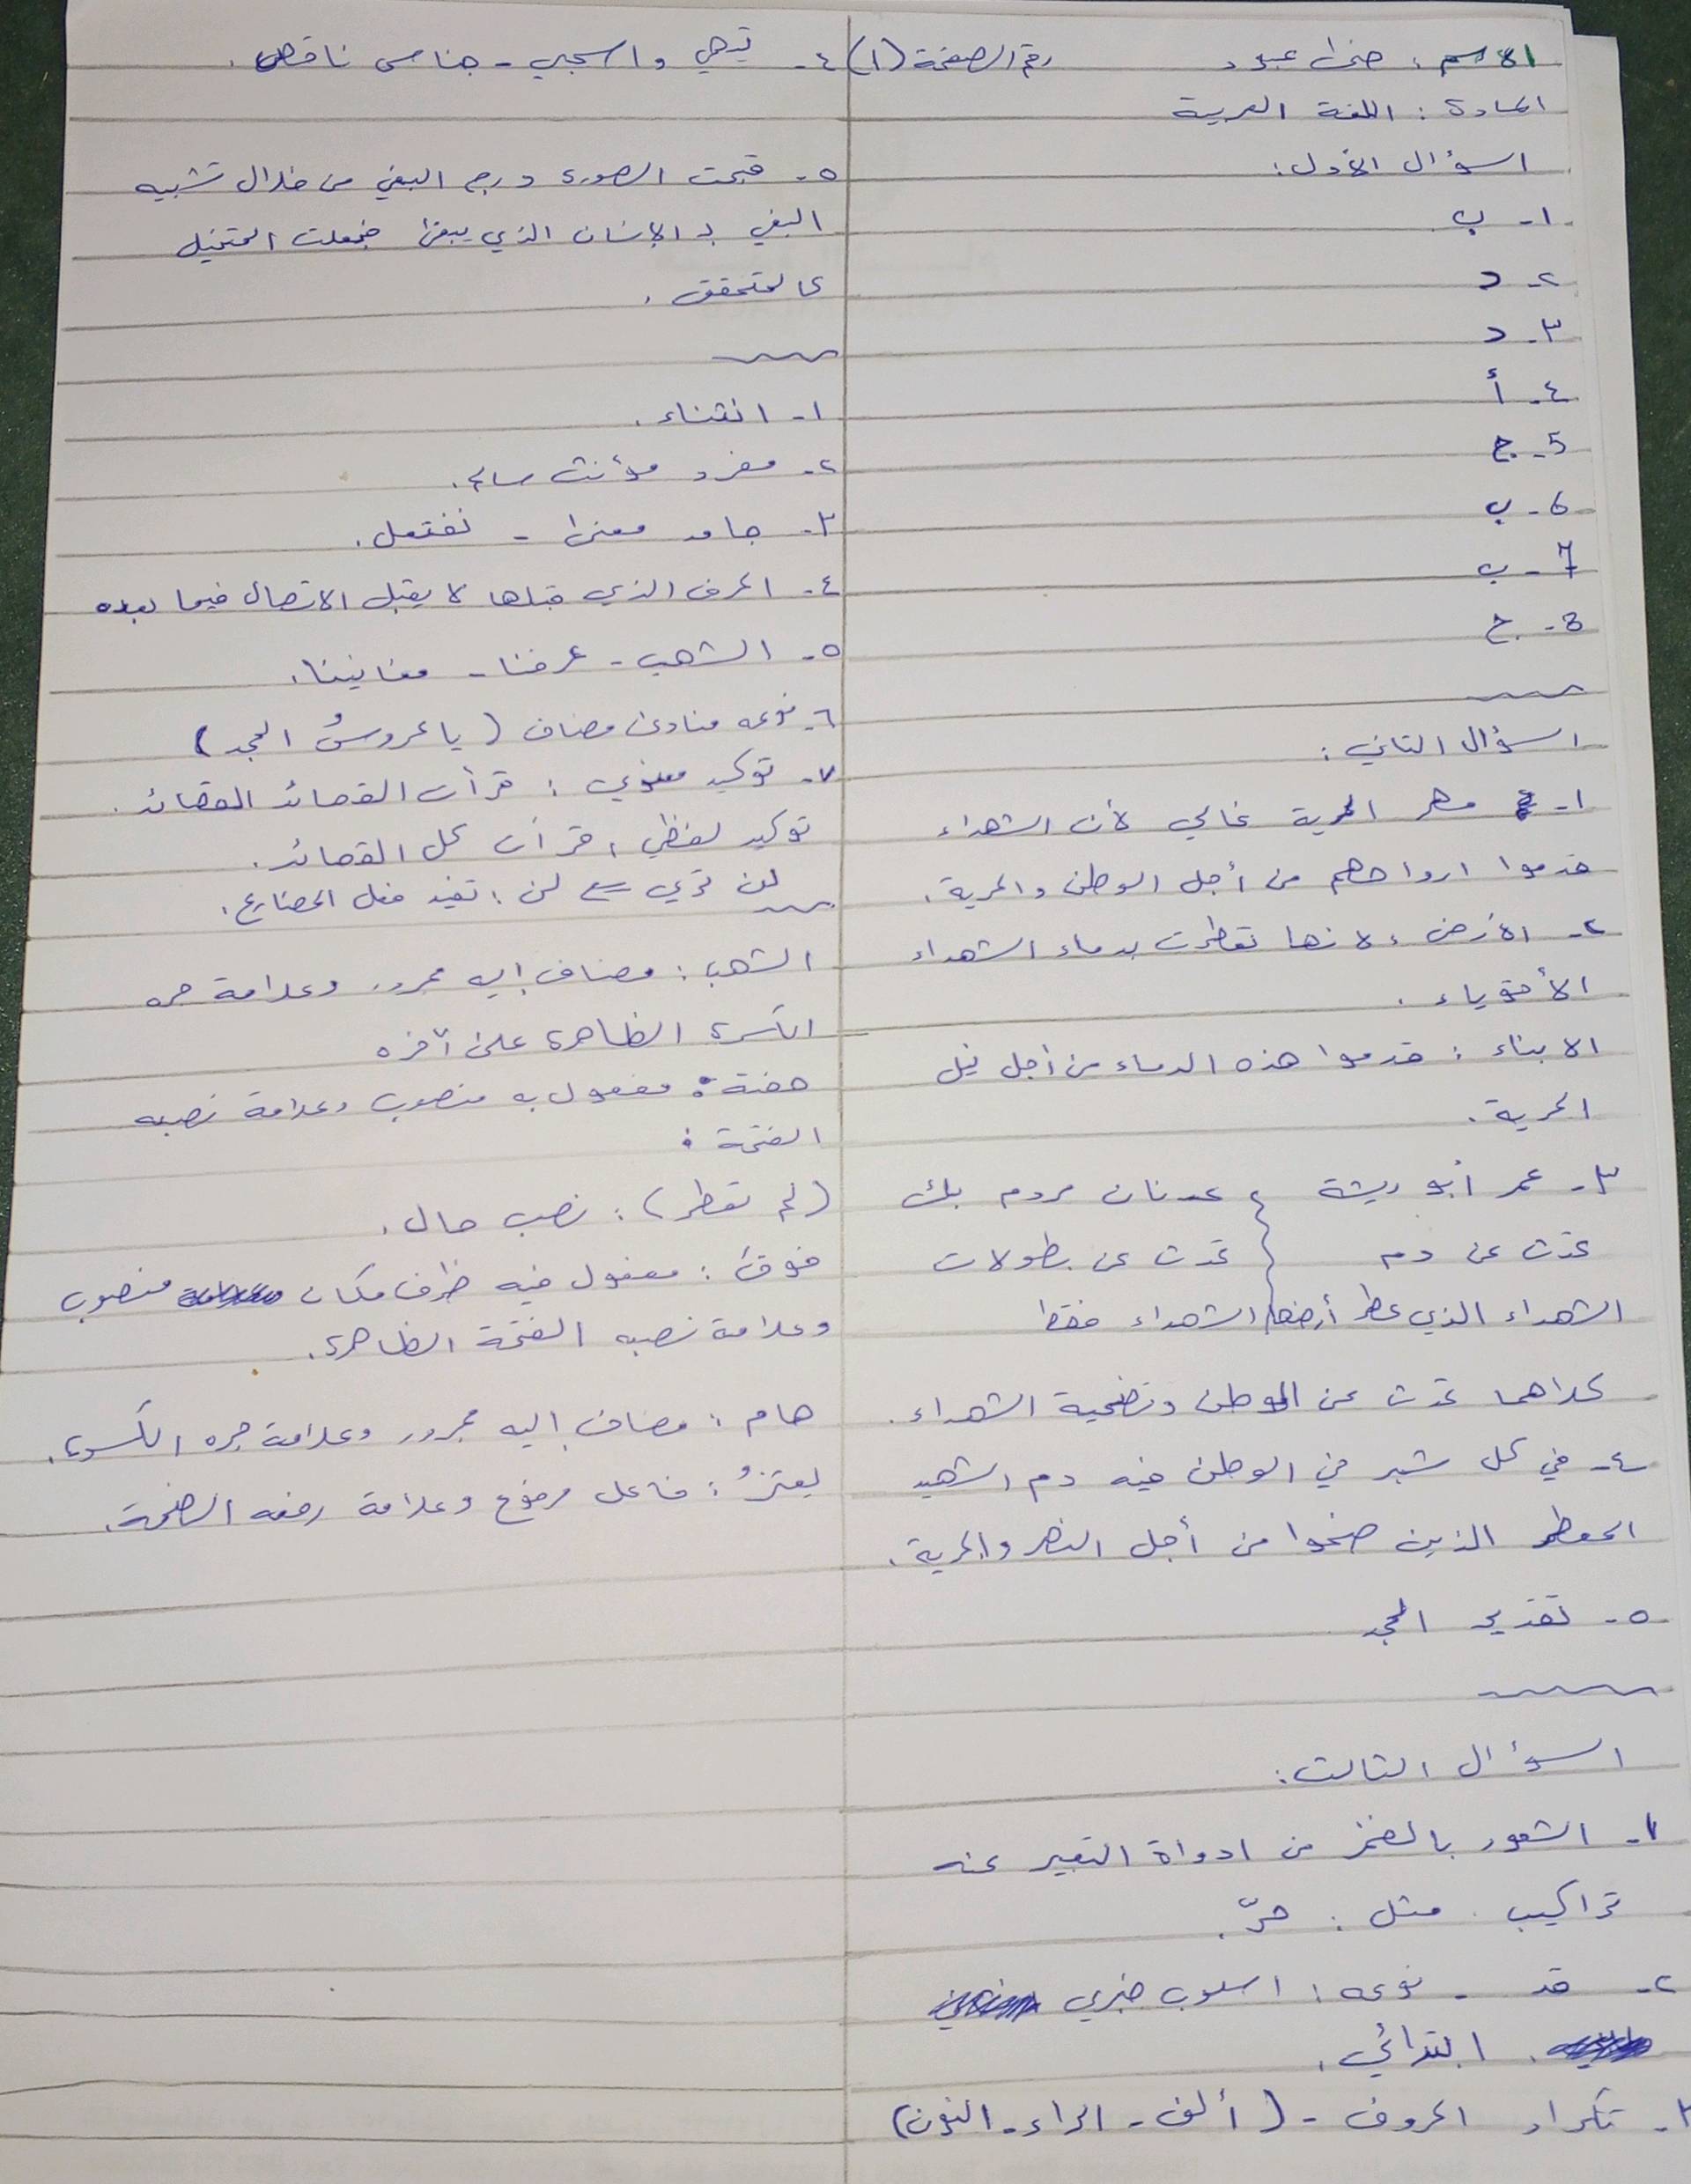 الاسم : حنى عبود رقم الصفحة (١)
المادة : اللغة العربية
السؤال الأول :
١- ب
٢- د
٣- د
٤- أ
5- ج
6- ب
7- ب
8- ج
السؤال الثاني :
١- مهر الحرية غالي لأن الشهداء
قدموا ارواحهم من أجل الوطن والحرية .
٢- الأرض : لانها تعطرت بدماء الشهداء
الأقوياء .
الابناء : قدموا هذه الدماء من أجل نيل
الحرية .
٣- عمر أبو ريشة } عدنان مردم بك
تحدث عن دم } تحدث عن بطولات
الشهداء الذي عطر أرضها } الشهداء فقط
كلاهما تحدث عن الوطن وتضحية الشهداء .
٤- في كل شبر في الوطن فيه دم الشهيد
المعطر الذين ضحوا من أجل النصر والحرية .
٥- تقدير المجد
السؤال الثالث :
١- الشعور بالفخر من ادواة التعبير عنه
تراكيب . مثل : حرّ .
٢- قد - نوعه : اسلوب خبري
ابتدائي .
٣- تكرار الحروف - (ألف - الراء - النون)
٤- تيهي واسحبي - جناس ناقص .
٥- قبحت الصورة درج البغي من خلال تشبيه
البغي بـ الإنسان الذي يبغى فجعلت المتخيل
كالمتحقق .
١- انتناء .
٢- مفرد مؤنث سالم .
٣- جامد معنى - نفتعل .
٤- الحرف الذي قبلها لا يقبل الاتصال فيما بعده
٥- الشهب - عرفنا - مغانينا .
٦- نوعه منادى مضاف (يا عروسُ المجد)
٧- توكيد معنوي : قرأت القصائد القصائد .
توكيد لفظي : قرأت كل القصائد .
لن تري ← لن : تفيد فعل المضارع .
الشهب : مضاف إليه مجرور وعلامة جره
الكسرة الظاهرة على آخره
حفنة : مفعول به منصوب وعلامة نصبه
الفتحة .
(لم تعطر) : نصب حال .
فوقَ : مفعول فيه ظرف مكان منصوب
وعلامة نصبه الفتحة الظاهرة .
هام : مضاف إليه مجرور وعلامة جره الكسرة .
يعتزُ : فاعل مرفوع وعلامة رفعه الضمة .